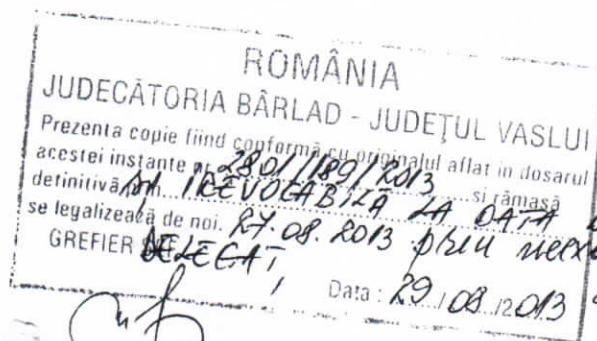 ROMÂNIA
JUDECĂTORIA BÂRLAD - JUDEŢUL VASLUI
Prezenta copie fiind conformă cu originalul aflat in dosarul
acestei instante nr. 2801/189/2013 si rămasă
definitivă ŞI IREVOCABILĂ LA DATA
se legalizează de noi. 27.08.2013 prin
GREFIER DELEGAT,
Data : 29/08/2013